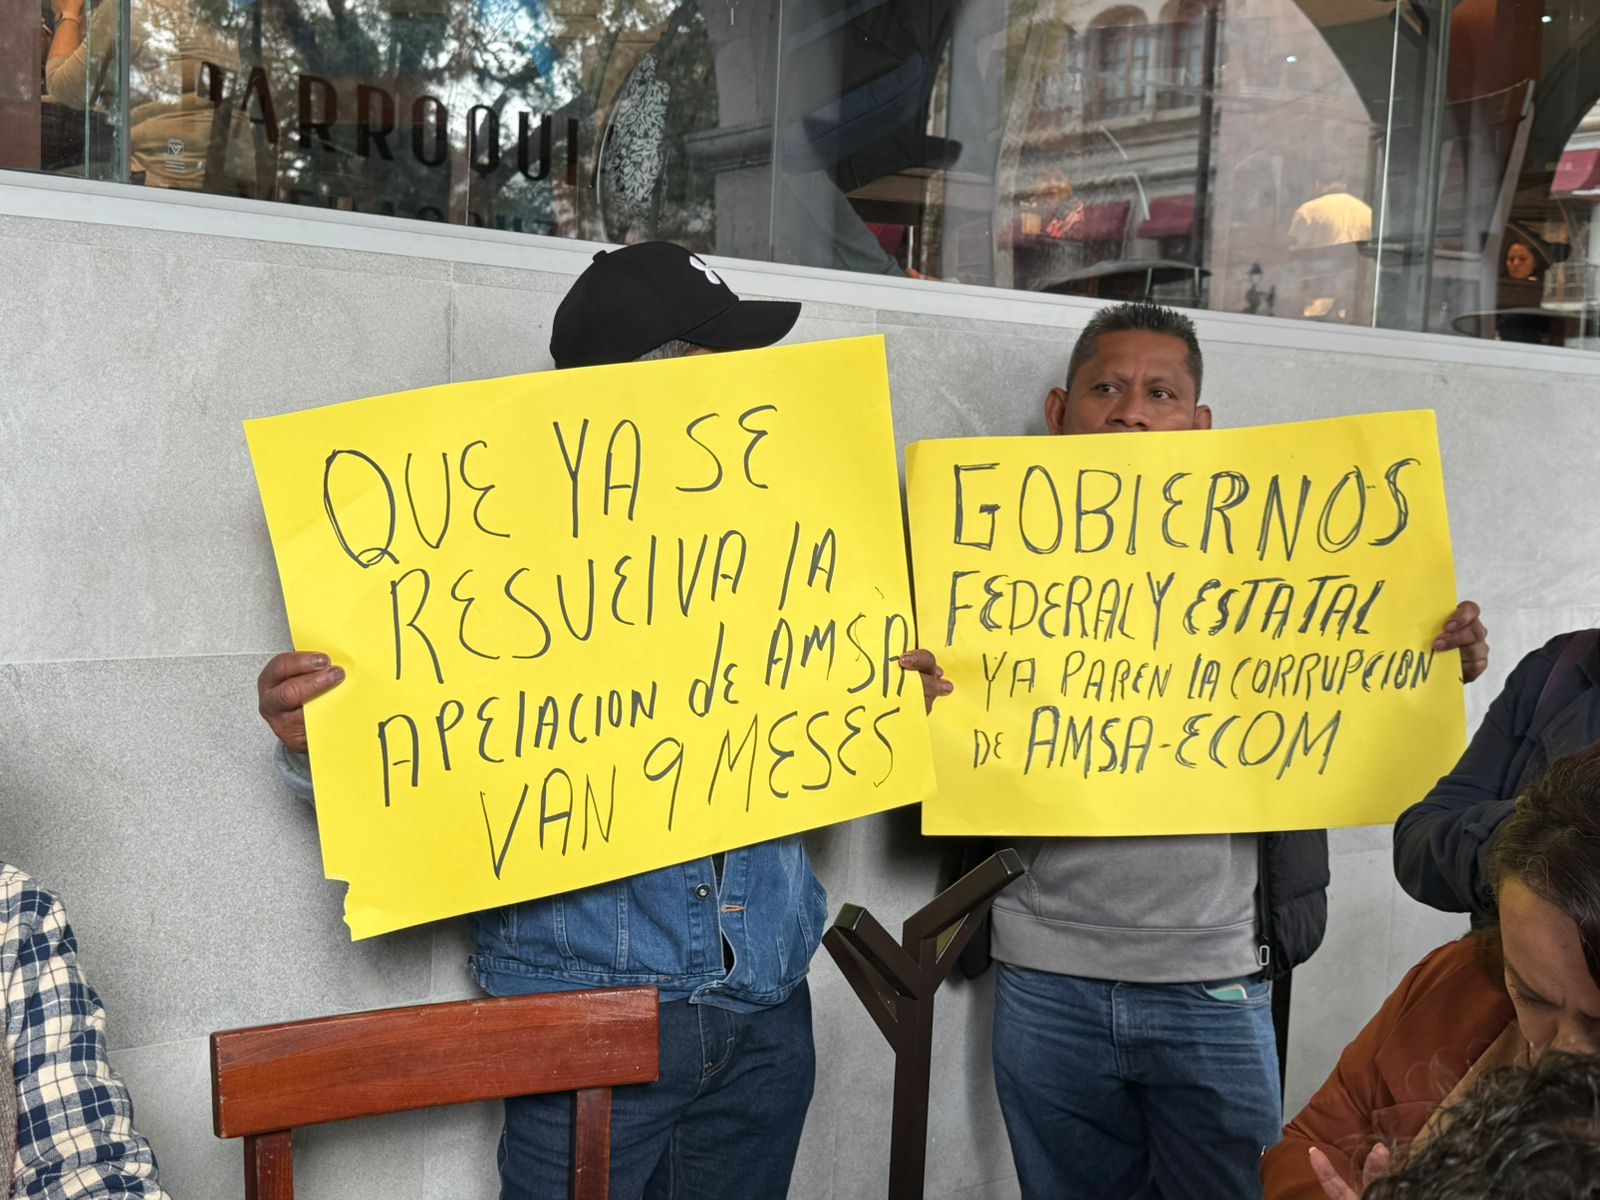 PARROQUI
QUE YA SE
RESUELVA LA
APELACION de AMSA
VAN 9 MESES
GOBIERNOS
FEDERAL Y ESTATAL
YA PAREN LA CORRUPCION
DE AMSA-ECOM